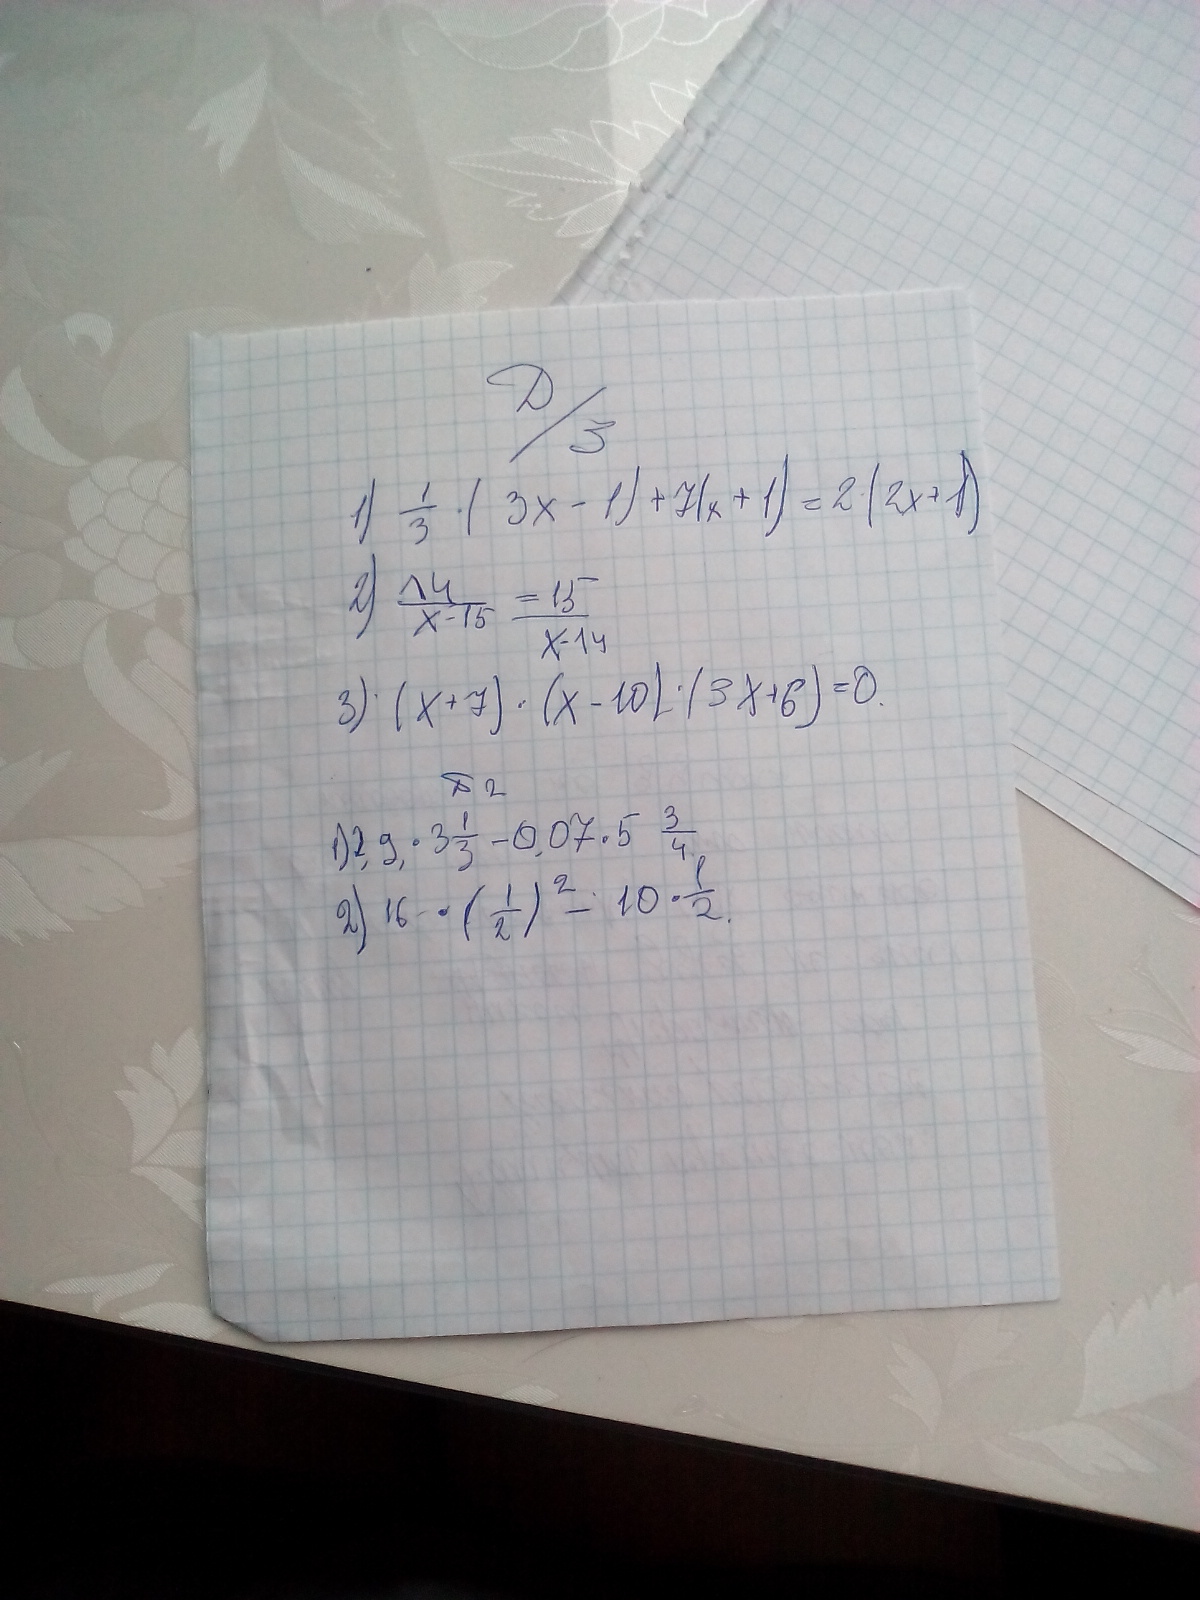 Д/З
1) 1/3 · (3x - 1) + 7(x + 1) = 2 · (2x + 1)
2) 14/x-15 = 15/x-14
3) · (x + 7) · (x - 10) · (3x + 6) = 0.
2
1) 2,9, · 3 1/3 - 0,07 · 5 3/4
2) 16 · (1/2)² - 10 · 1/2.